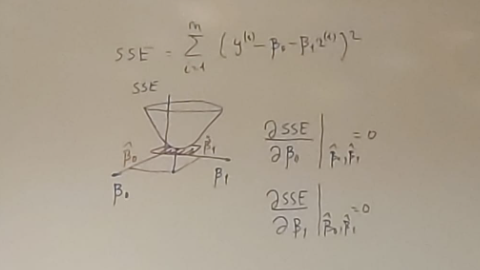 SSE = Σ_{i=1}^{m} (y^{(i)} - β₀ - β₁ x^{(i)})²
SSE
β̂₀ β̂₁
β₀ β₁
∂SSE/∂β₀ |_{β̂₀, β̂₁} = 0
∂SSE/∂β₁ |_{β̂₀, β̂₁} = 0